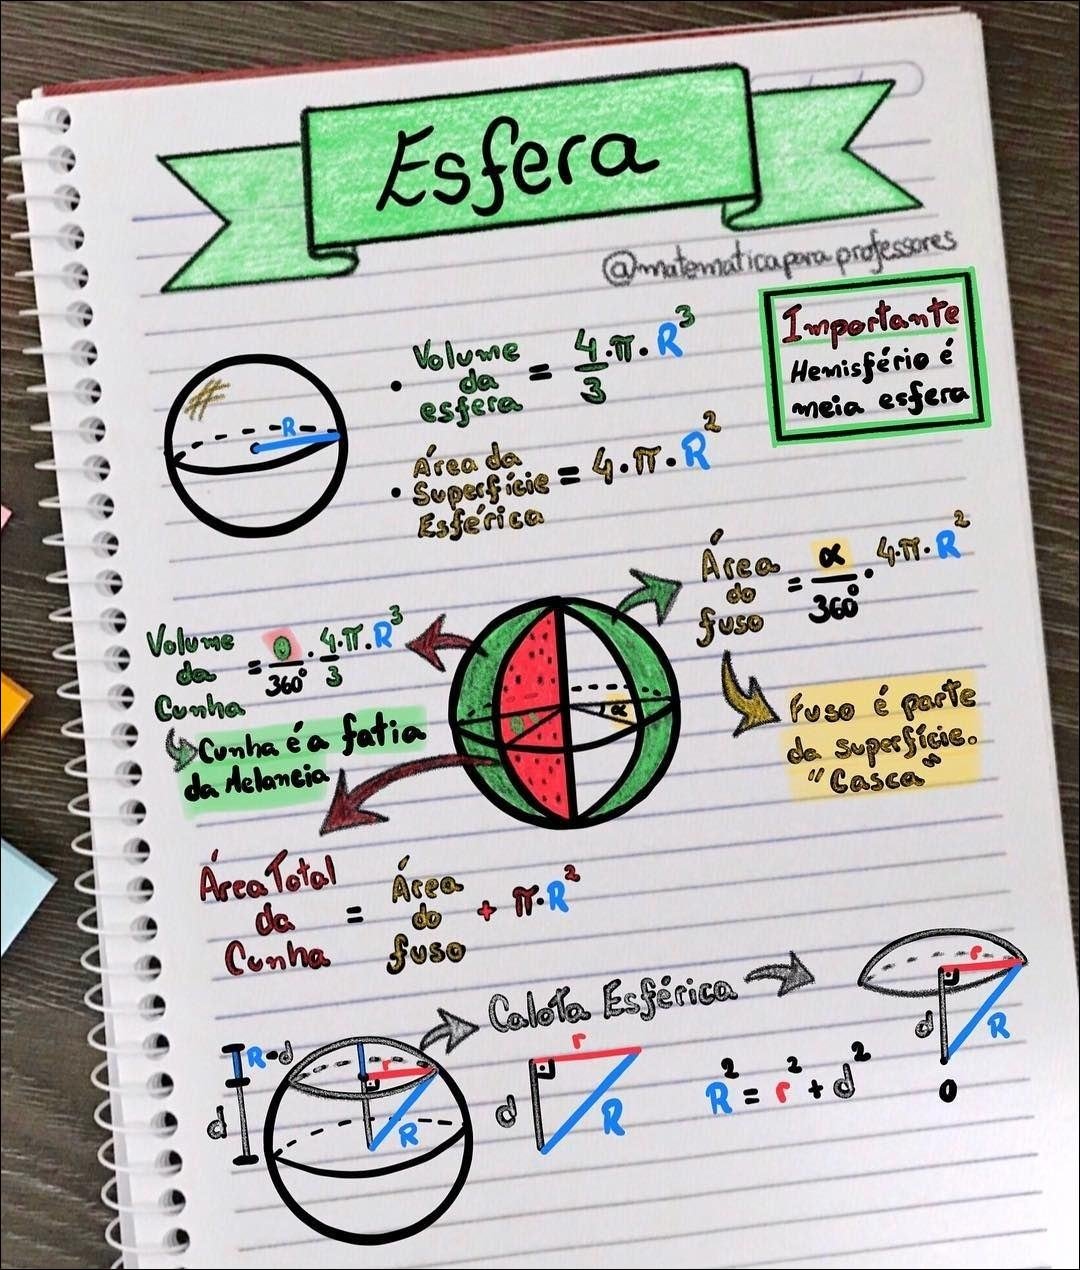 Esfera
@matematicaparaprofessores
Importante
Hemisfério é
meia esfera
• Volume da esfera = 4·π·R³/3
R
• Área da Superfície Esférica = 4·π·R²
Área do fuso = α/360° · 4·π·R²
Volume da Cunha = θ/360° · 4·π·R³/3
Cunha é a fatia
da Melancia
θ
α
Fuso é parte
da superfície.
"Casca"
Área Total da Cunha = Área do fuso + π·R²
Calota Esférica
r
d
R
O
R-d
d
r
R
r
d
R
R² = r² + d²